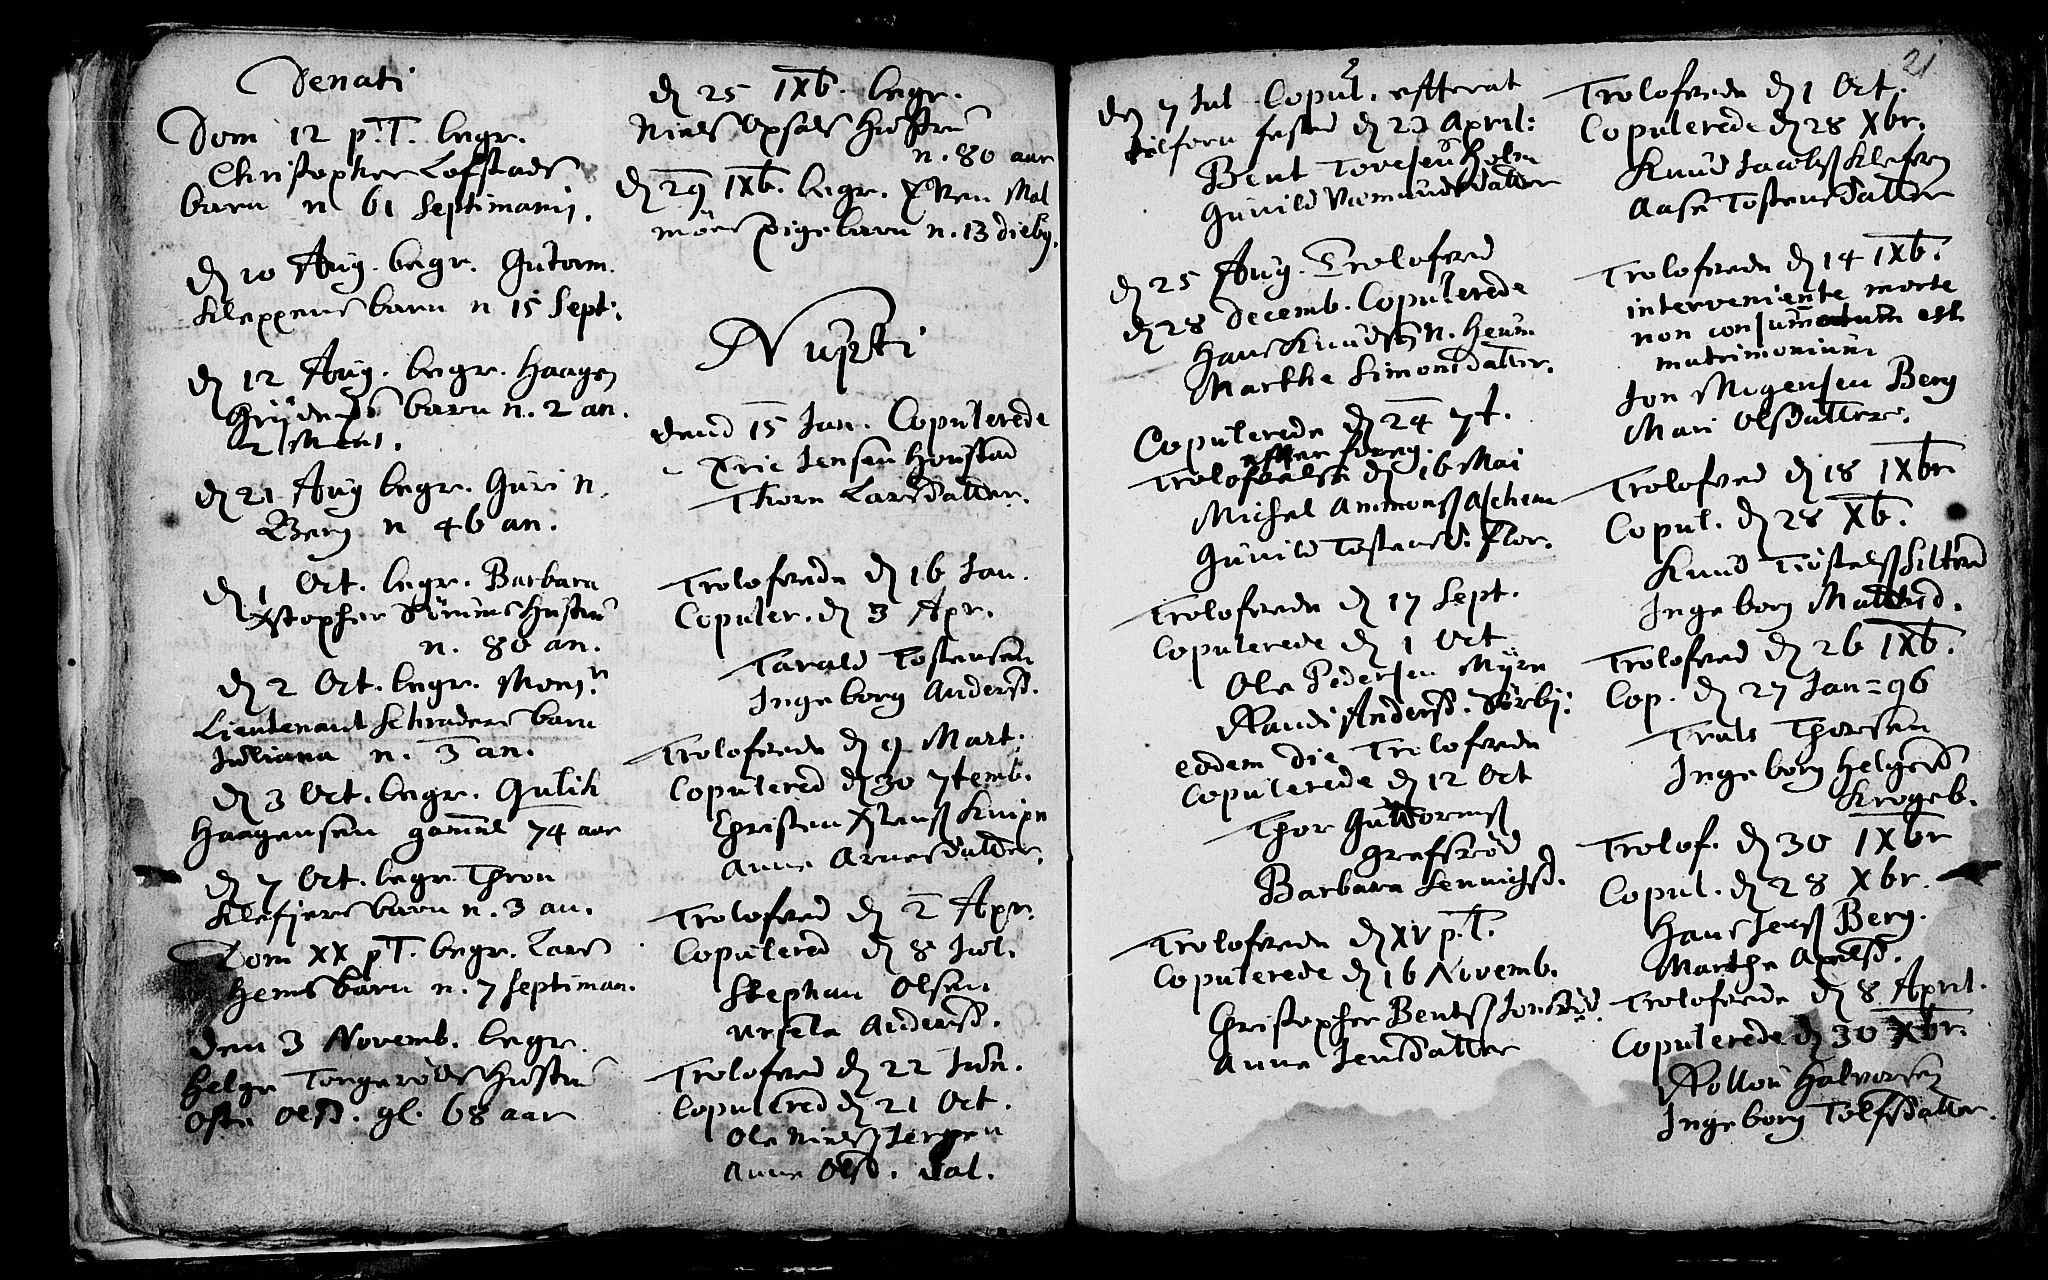 Denati
Dom 12 p. T. begr.
Christopher Lofstads
barn n 61 Septimanis.
dn 20 Aug. begr. Gutorm
Kleppens barn n 15 Sept:
dn 12 Aug. begr. Haagen
barn n. 2 an.
2 Mens.
dn 21 Aug begr. Guri n.
Berg n 46 an.
dn 1 Oct. begr. Barbara
Xstopher Hustru
n. 80 an.
dn 2 Oct. begr. Monsr
Lieutenant Schraders barn
Juliana n. 3 an.
dn 3 Oct. begr. Gulik
Haagensen gaml 74 aar
dn 7 Oct. begr. Thron
Klefjers barn n. 3 an.
Dom XX p T. begr. Lars
Hems barn n. 7 septiman.
den 3 Novemb. begr.
Helge Torgerøds Hustru
Olsd. gl. 68 aar
dn 25 IXb. begr.
Niels Opsals Hustru
n. 80 aar
dn 29 IXb. begr. Mal
möes pigebarn n. 13 dieb.
Nupti
dend 15 Jan. Copulerede
Jensen Horstad
Thore Larsdatter.
Trolofvede dn 16 Jan.
Copuler. dn 3 Apr.
Tarald Tostensen
Ingeborg Andersd.
Trolofvede dn 9 Mart.
Copulered dn 30 7temb.
Christen Knipe
Anne Arnesdatter.
Trolofved dn 2 Apr.
Copulered dn 8 Jul.
Stephan Olsen
Ursela Andersd.
Trolofved dn 22 Jun.
Copulered dn 21 Oct.
Ole Nielss Jersøen
Anne Olsd. Dal.
21
den 7 Jul Copul. efterat
tilforn fested dn 23 April:
Bent Toresen Holm
Gunild Vemundsdatter
dn 25 Aug. Trolofved
dn 28 Decemb. Copulerede
Hans Knudss N. Heum
Marthe Simonsdatter.
Copulerede dn 24 7t.
efter foreg.
Trolofvelse dn 16 Mai
Michel Ammonss Aschem
Gunild Tostensd. Flor.
Trolofvede dn 17 Sept.
Copulerede dn 1 Oct
Ole Pedersen Myre
Randi Andersd. Sørby:
eodem die Trolofvede
Copulerede dn 12 Oct
Thor Guttormss
Grefsrød
Barbara
Trolofvede dn XV p. T.
Copulerede dn 16 Novemb.
Christopher Bentss
Anne Jensdatter
Trolofvede dn 1 Oct.
Copulerede dn 28 Xbr.
Knud Jacobss Klefern
Aase Tostensdatter
Trolofvede dn 14 IXb.
interveniente morte
non consumatum est
matrimonium
Jon Mogensen Berg
Mari Olsdatter.
Trolofved dn 18 IXbr
Copul. dn 28 Xb.
Knud
Ingeborg
Trolofved dn 26 IXb.
Cop. dn 27 Jan = 96
Truls Thorsen
Ingeborg Helgesd
Krogeb.
Trolof. dn 30 IXbr
Copul. dn 28 Xbr.
Hans Jenss Berg.
Marthe
Trolofvede dn 8 April.
Copulerede dn 30 Xbr.
Rollou Halvorsen
Ingeborg Tolfsdatter.